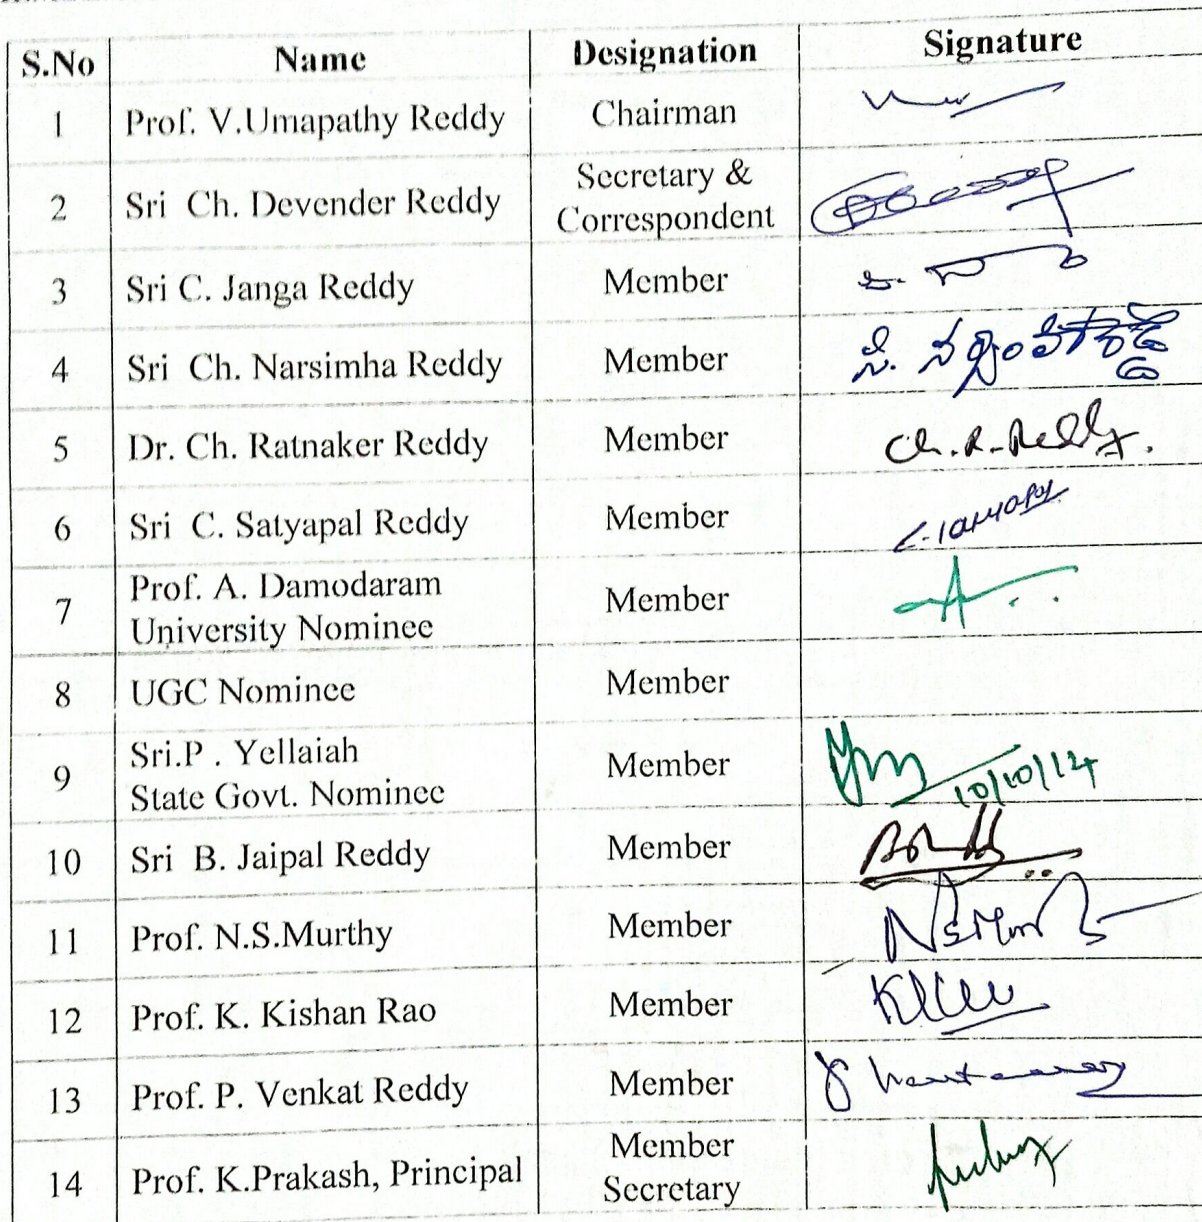 S.No Name Designation Signature
1 Prof. V.Umapathy Reddy Chairman
2 Sri Ch. Devender Reddy Secretary &
Correspondent
3 Sri C. Janga Reddy Member
4 Sri Ch. Narsimha Reddy Member
5 Dr. Ch. Ratnaker Reddy Member Ch.R.Reddy.
6 Sri C. Satyapal Reddy Member
7 Prof. A. Damodaram Member
University Nominee
8 UGC Nominee Member
9 Sri.P . Yellaiah Member
State Govt. Nominee 10/10/14
10 Sri B. Jaipal Reddy Member
11 Prof. N.S.Murthy Member
12 Prof. K. Kishan Rao Member
13 Prof. P. Venkat Reddy Member
14 Prof. K.Prakash, Principal Member
Secretary